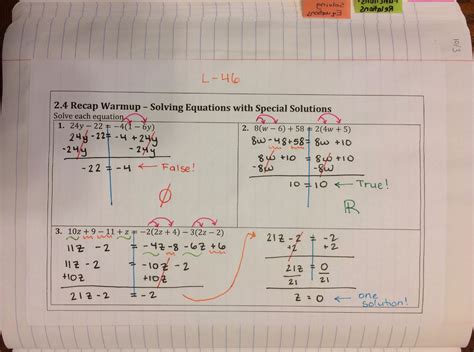 Solving
Equations
Functions
Relations
10/3
L-46
2.4 Recap Warmup – Solving Equations with Special Solutions
Solve each equation.
1. 24y – 22 = –4(1 – 6y)
24y -22 = -4 + 24y
-24y -24y
-22 = -4 ← False!
∅
2. 8(w – 6) + 58 = 2(4w + 5)
8w -48+58 = 8w +10
8w +10 = 8w +10
-8w -8w
10 = 10 ← True!
ℝ
3. 10z + 9 – 11 + z = –2(2z + 4) – 3(2z – 2)
11z -2 = -4z -8 -6z +6
11z -2 = -10z -2
+10z +10z
21z -2 = -2
21z -2 = -2
+2 +2
21z = 0
21 21
z = 0 ← one
solution!